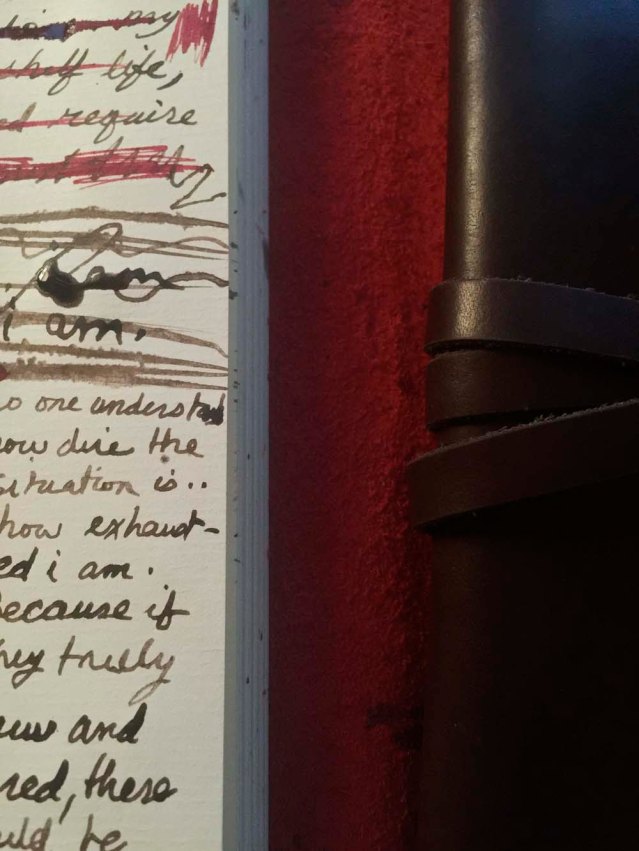 shelf life,
require
am
i am.
no one understand
how dire the
situation is..
how exhaust-
ed i am.
Because if
they truely
and
red, these
uld be